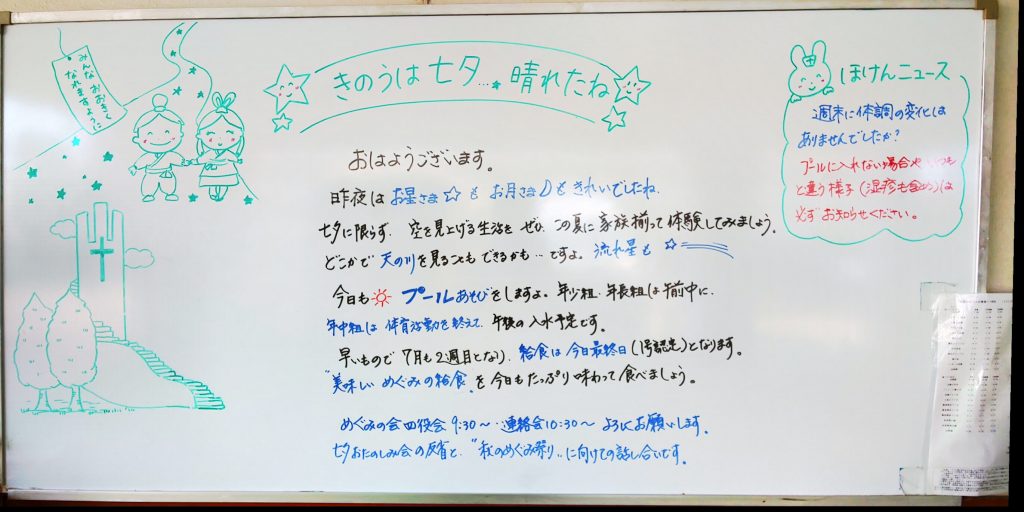 みんなおおきく
なれますように
きのうは七夕…晴れたね
おはようございます。
昨夜はお星さま☆もお月さまもきれいでしたね。
七夕に限らず、空を見上げる生活をぜひ、この夏に家族揃って体験してみましょう。
どこかで天の川を見ることもできるかも…ですよ。流れ星も☆
今日も プールあそびをしますよ。年少組・年長組は午前中に、
年中組は体育活動を終えて、午後の入水予定です。
早いもので7月も2週目となり、給食は今日最終日(1号認定)となります。
"美味しいめぐみの給食"を今日もたっぷり味わって食べましょう。
めぐみの会四役会9:30～…連絡会10:30～よろしくお願いします。
七夕おたのしみ会の反省と、"秋のめぐみ祭り"に向けての話し合いです。
ほけんニュース
週末に体調の変化は
ありませんでしたか?
プールに入れない場合やいつも
と違う様子(湿疹も含め)は
必ずお知らせください。